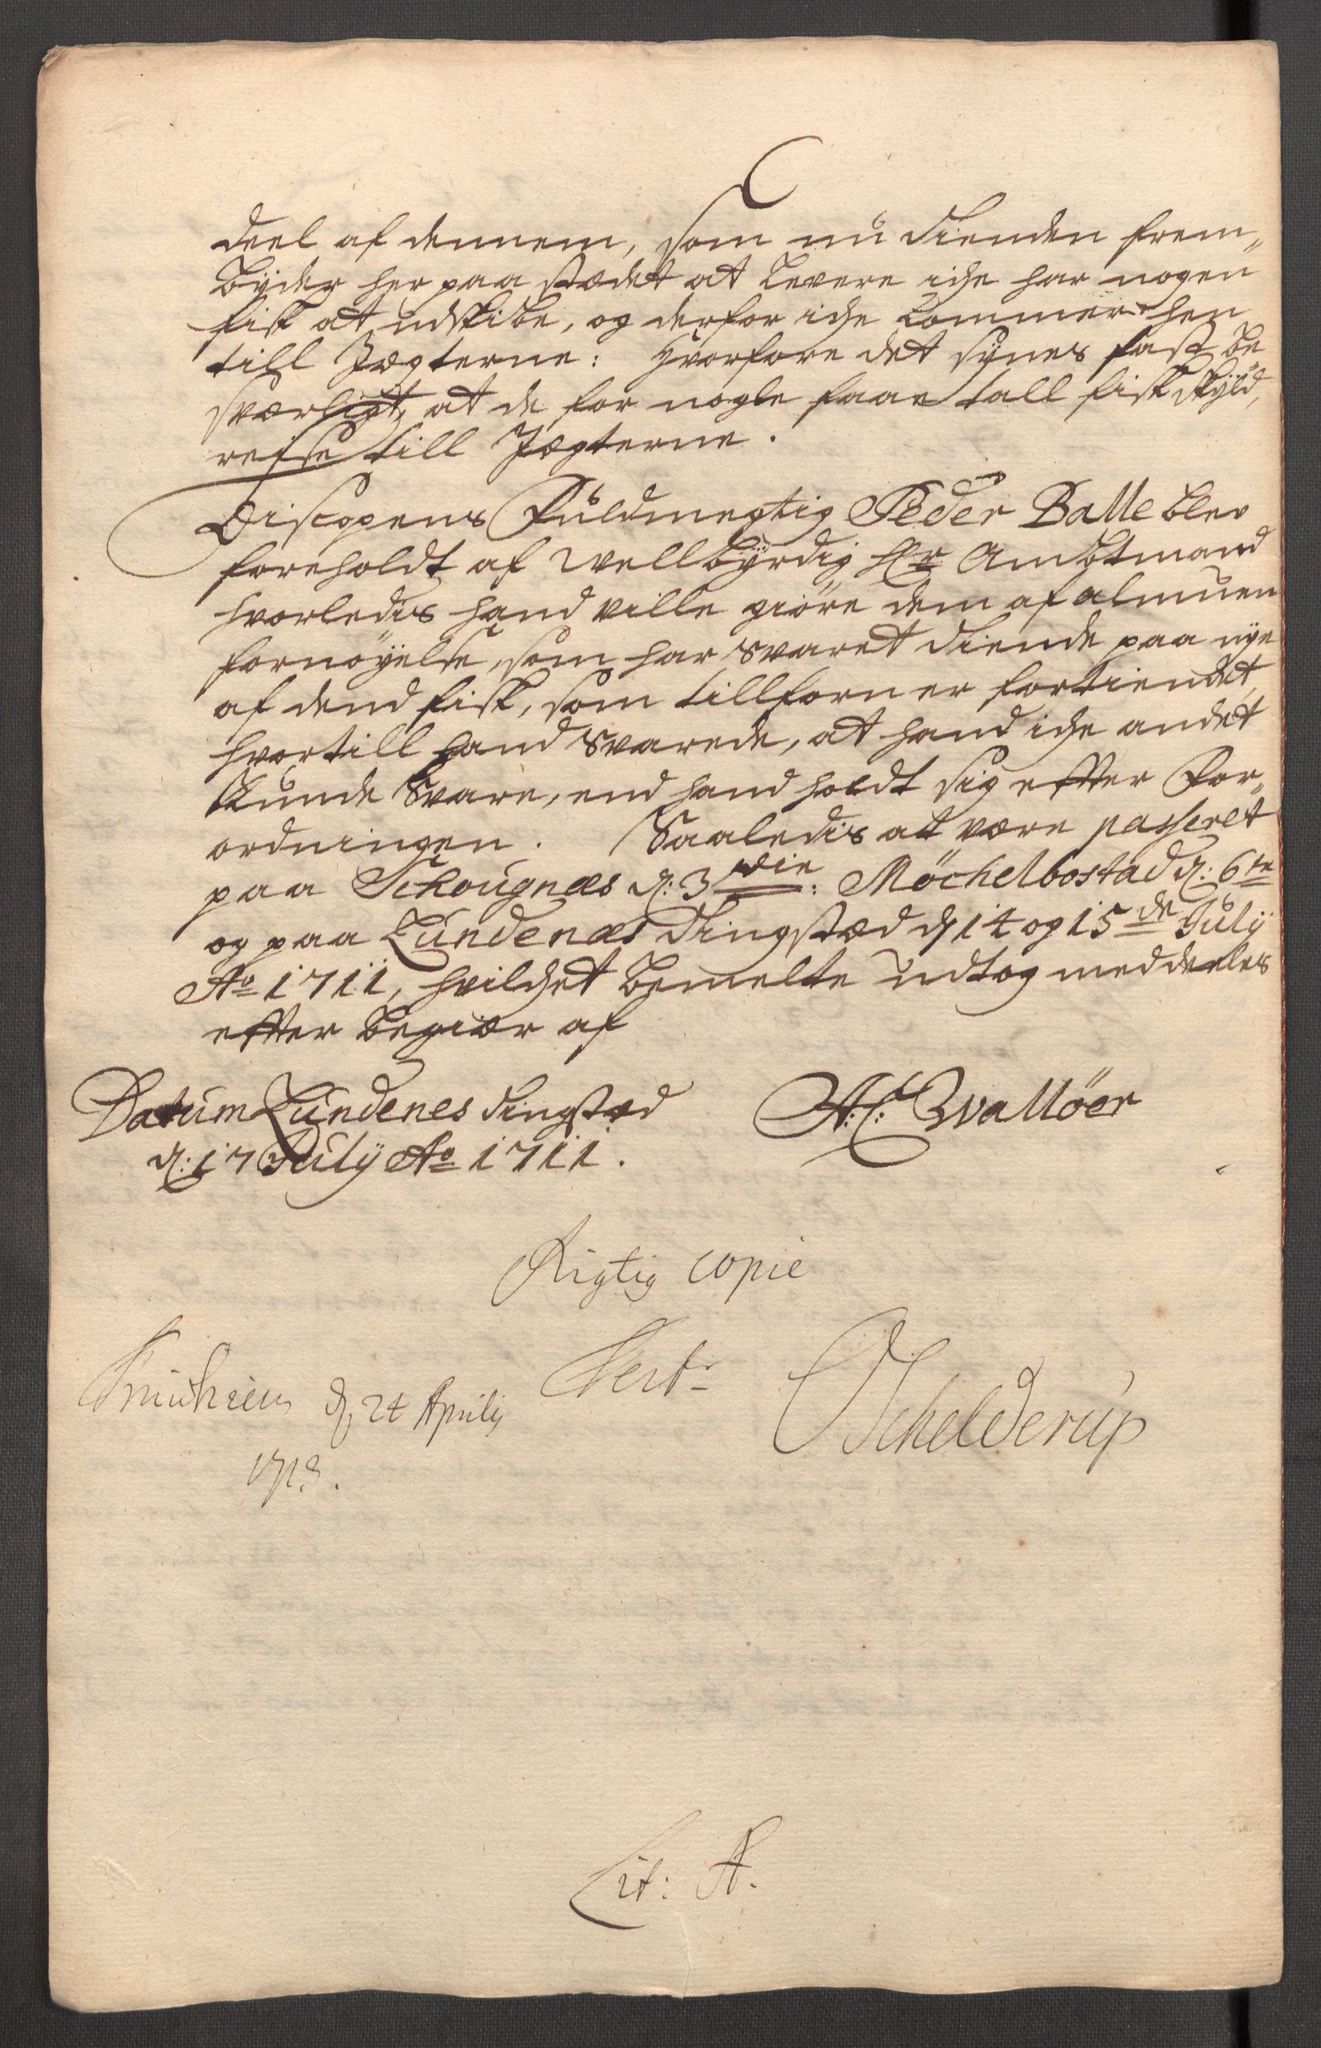 deel af dennem, som nu Tienden frem„
byder her paa stædet at levere iche har nogen
fisk at udskibe, og derfor iche kommer hen
till Jægterne: hvorfore det synes fast be
sværligt, at de for nogle faae tall fisk skyld,
reise till Jægterne.
Biscopens Fuldmegtig Peder Balle blev
foreholdt af Wellbyrdig Hr Ambtmand
hvorledis hand ville giöre dem af almuen
fornöyelse, som har svaret Tiende paa nye
af dend fisk, som tillforn er fortiendet,
hvortill hand svarede, at hand iche andet
kunde svare, end hand holdt sig efter For„
ordningen. Saaledis at være passeret
paa Schougnæs d: 3die: Möchelbostad d: 6te
og paa Lundenæs Tingstæd d 14 og 15de July
Ao 1711, hvilchet bemelte udtog meddeeles
efter begiær af
Datum Lundenes Tingstæd
d: 17 July Ao 1711.
A: C: Wallöer
Rigtig copie
Test:
d 24 Aprily
1713.
Schelderup
Lit: A.